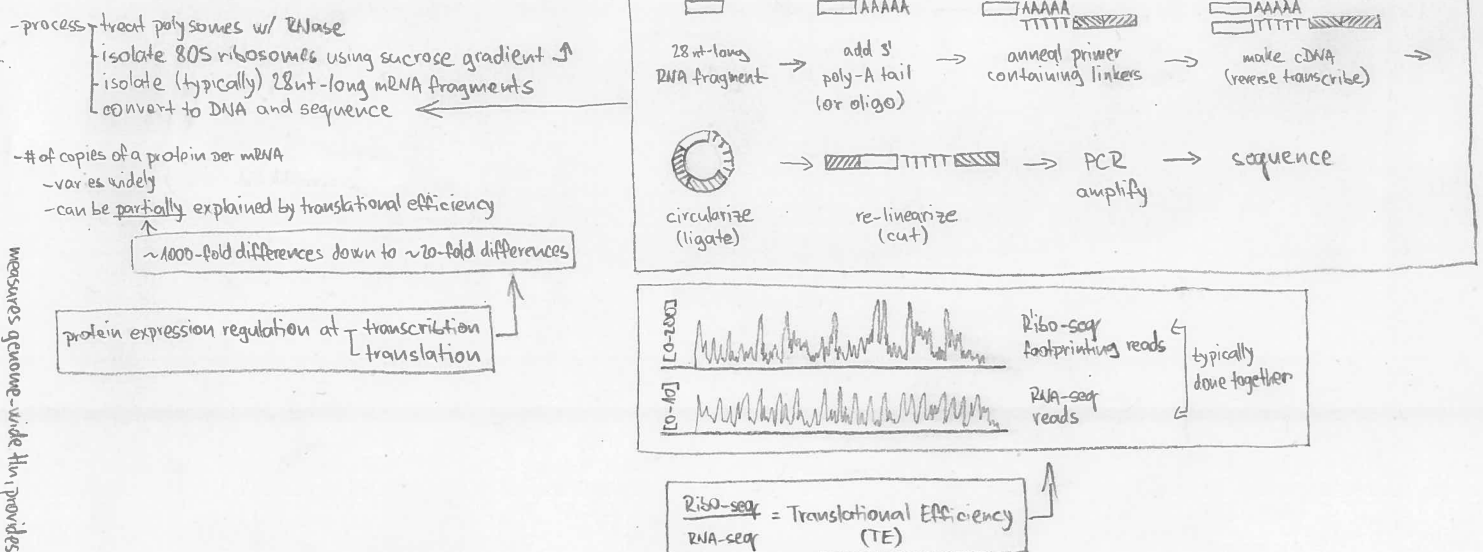 -process
-treat polysomes w/ RNase
-isolate 80S ribosomes using sucrose gradient
-isolate (typically) 28nt-long mRNA fragments
convert to DNA and sequence
-# of copies of a protein per mRNA
-varies widely
-can be partially explained by translational efficiency
~1000-fold differences down to ~20-fold differences
protein expression regulation at
transcribtion
translation
measures genome-wide tln, provides
AAAAA
AAAAA
TTTTT
AAAAA
TTTTT
28nt-long
RNA fragment
add 3'
poly-A tail
(or oligo)
anneal primer
containing linkers
make cDNA
(reverse transcribe)
circularize
(ligate)
TTTT
re-linearize
(cut)
PCR
amplify
sequence
[0-200]
Ribo-seq
footprinting reads
[0-10]
RNA-seq
reads
typically
done together
Ribo-seq
RNA-seq
= Translational Efficiency
(TE)